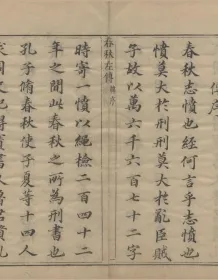 序
春秋志憤也經何言乎志憤也
憤莫大於刑刑莫大於亂臣賊
子故以萬六千六百七十二字
春秋左傳 序
時寄一憤以繩檢二百四十二
年之間此春秋之所為刑書也
孔子脩春秋使子夏等十四人